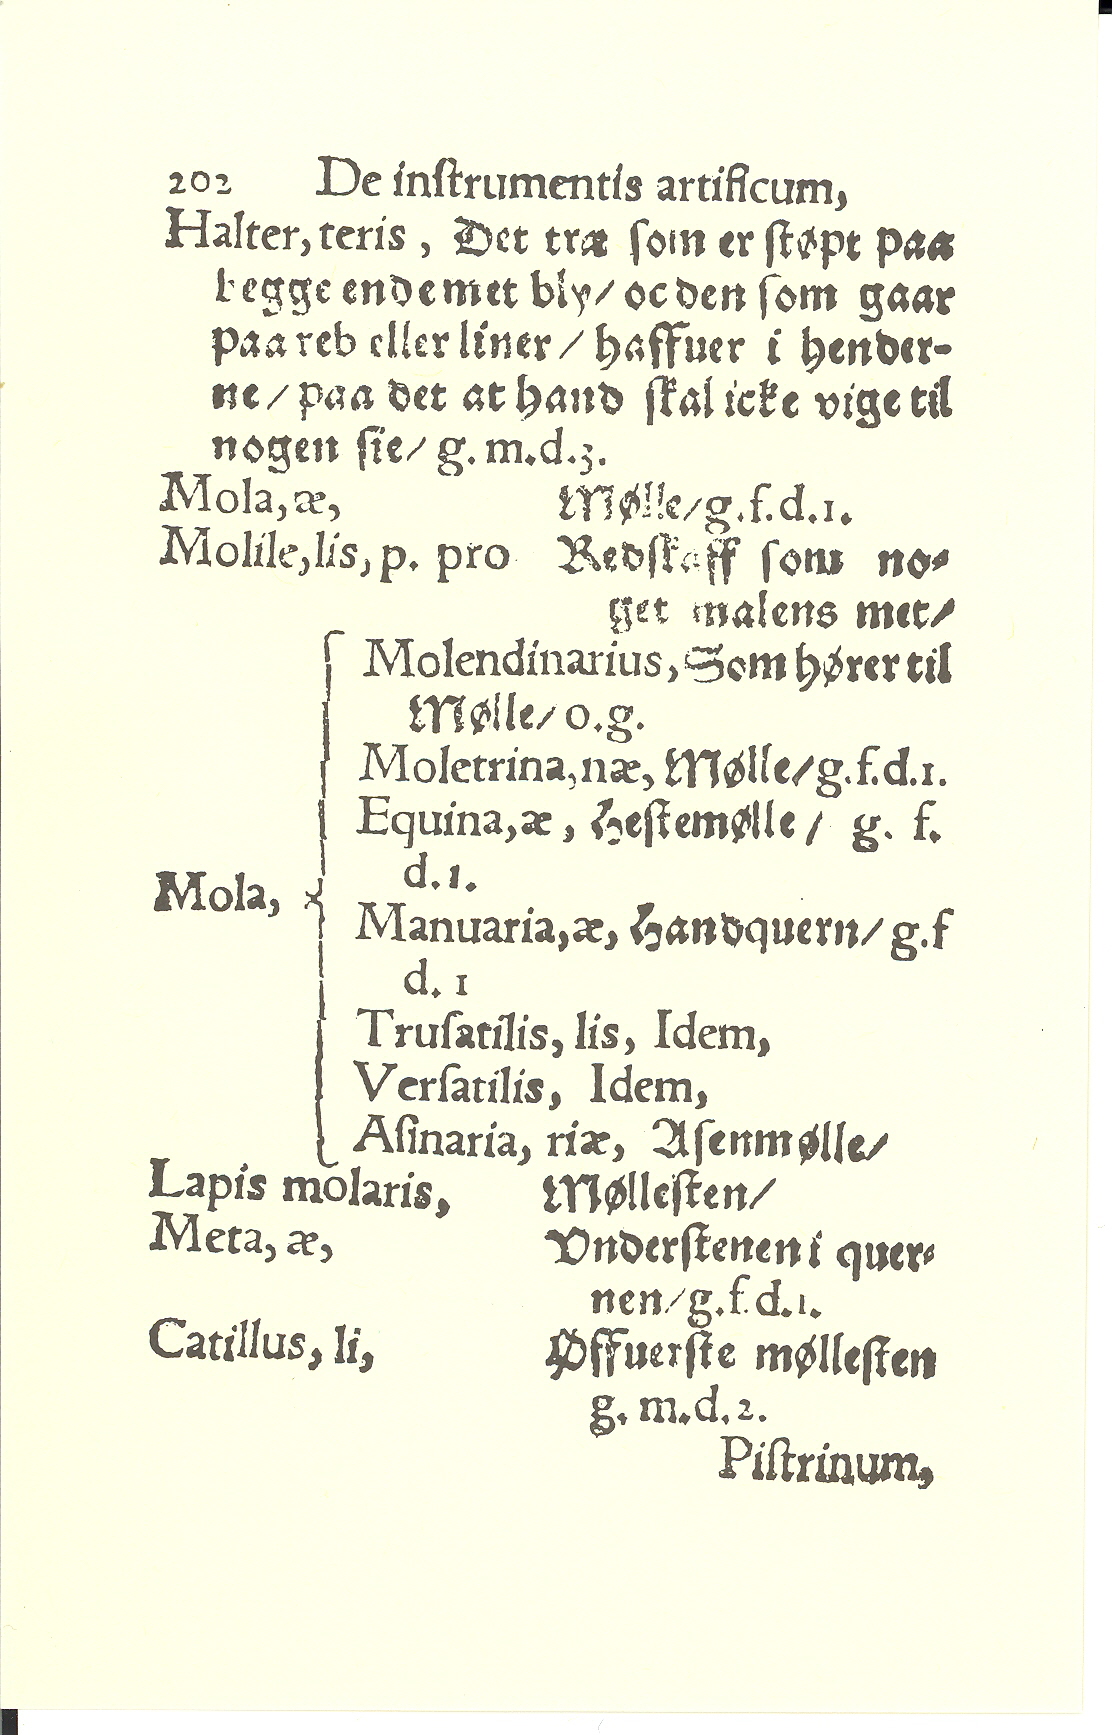 202 De inſtrumentis artificum,
Halter, teris, Det træ ſom er ſtøpt paa
begge ende met bly/ oc den ſom gaar
paa reb eller liner/ haffuer i hender-
ne/ paa det at hand ſkal icke vige til
nogen ſie/ g. m. d. 3.
Mola, æ, Mølle/ g. f. d. 1.
Molile, lis, p. pro Redſkaff ſom no-
get malens met/
Molendinarius, Som hører til
Mølle/ o. g.
Moletrina, næ, Mølle/ g. f. d. 1.
Equina, æ, Heſtemølle/ g. f.
d. 1.
Mola,
Manuaria, æ, Handquern/ g. f
d. 1
Truſatilis, lis, Idem,
Verſatilis, Idem,
Aſinaria, riæ, Aſenmølle/
Lapis molaris, Mølleſten/
Meta, æ, Vnderſtenen i quer-
nen/ g. f. d. 1.
Catillus, li, Øffuerſte mølleſten
g. m. d. 2.
Piſtrinum,